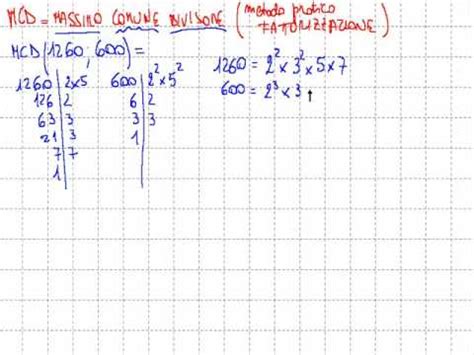 MCD = MASSIMO COMUNE DIVISORE (metodo pratico FATTORIZZAZIONE)
MCD (1260, 600) =
1260 | 2×5
126 | 2
63 | 3
21 | 3
7 | 7
1 |
600 | 2²×5²
6 | 2
3 | 3
1 |
1260 = 2² × 3² × 5 × 7
600 = 2³ × 3